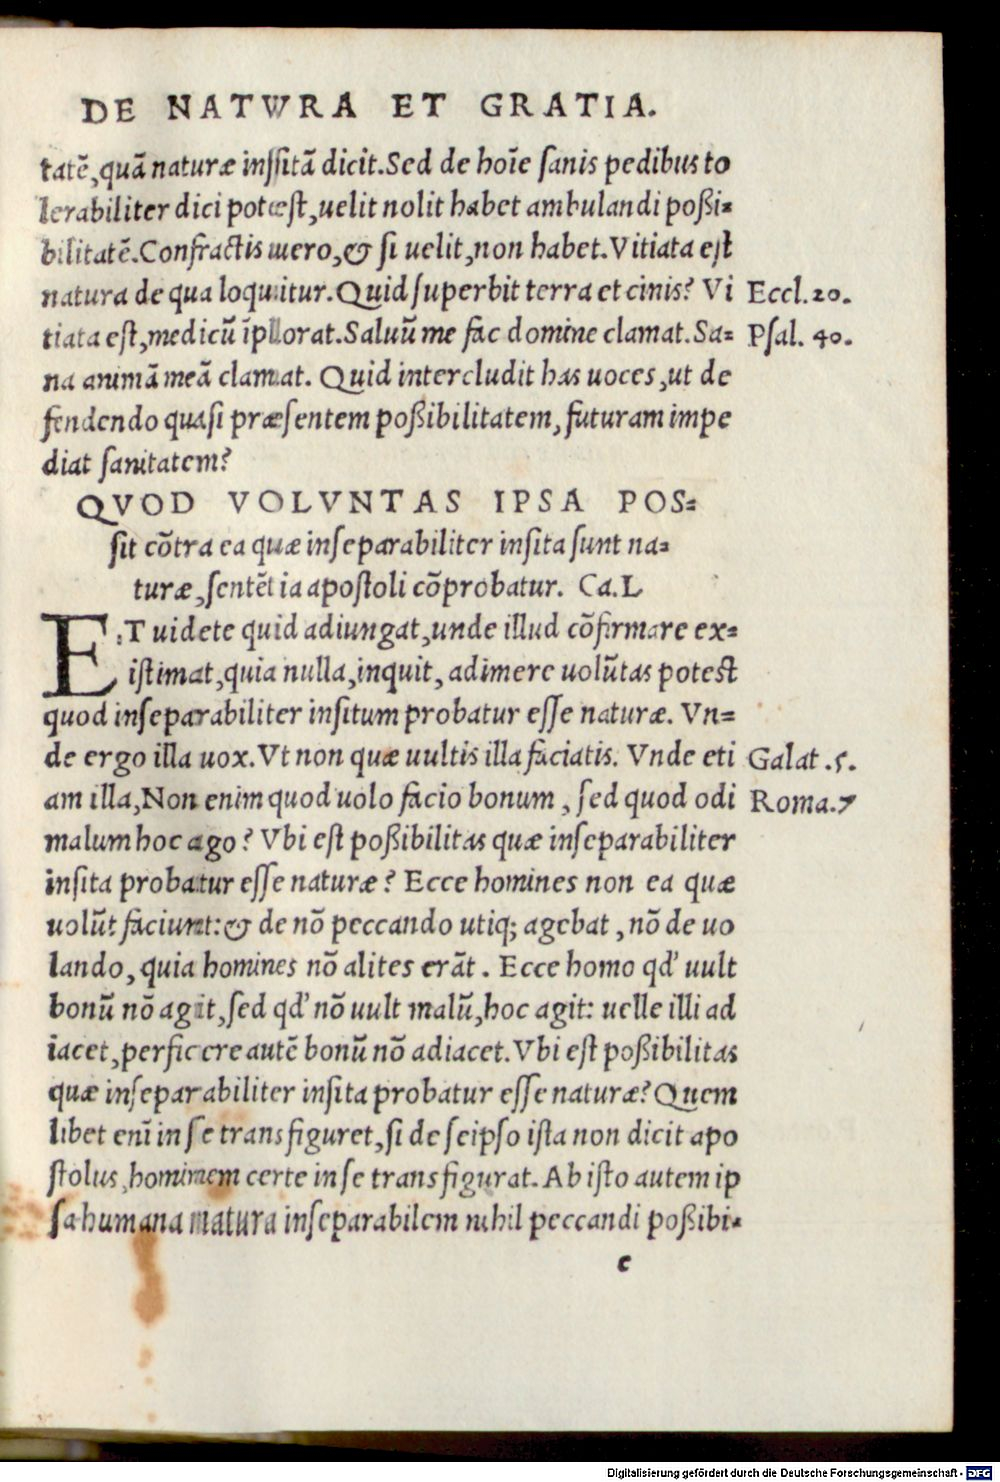 DE NATVRA ET GRATIA.
tatē,quā naturæ inſſitā dicit.Sed de hoīe ſanis pedibus to
lerabiliter dici poteſt,uelit nolit habet ambulandi poßi-
bilitatē.Confractis uero,& ſi uelit,non habet.Vitiata eſt
natura de qua loquitur.Quid ſuperbit terra et cinis? Vi Eccl.20.
tiata eſt,medicū īplorat.Saluū me fac domine clamat.Sa- Pſal. 40.
na animā meā clamat. Quid intercludit has uoces,ut de
fendendo quaſi præſentem poßibilitatem, futuram impe
diat ſanitatem?
QVOD VOLVNTAS IPSA POS-
ſit cōtra ea quæ inſeparabiliter inſita ſunt na-
turæ,ſentētia apoſtoli cōprobatur. Ca.L
ET uidete quid adiungat,unde illud cōfirmare ex-
iſtimat,quia nulla,inquit, adimere uolūtas poteſt
quod inſeparabiliter inſitum probatur eſſe naturæ. Vn-
de ergo illa uox.Vt non quæ uultis illa faciatis. Vnde eti Galat.5.
am illa,Non enim quod uolo facio bonum , ſed quod odi Roma.7
malum hoc ago? Vbi eſt poßibilitas quæ inſeparabiliter
inſita probatur eſſe naturæ? Ecce homines non ea quæ
uolūt faciunt:& de nō peccando utiq; agebat , nō de uo
lando, quia homines nō alites erāt. Ecce homo qd' uult
bonū nō agit,ſed qd' nō uult malū,hoc agit: uelle illi ad
iacet,perficere autē bonū nō adiacet.Vbi eſt poßibilitas
quæ inſeparabiliter inſita probatur eſſe naturæ?Quem
libet enī in ſe transfiguret,ſi de ſeipſo iſta non dicit apo
ſtolus,hominem certe in ſe transfigurat. Ab iſto autem ip
ſa humana natura inſeparabilem nihil peccandi poßibi-
c
Digitalisierung gefördert durch die Deutsche Forschungsgemeinschaft - DFG